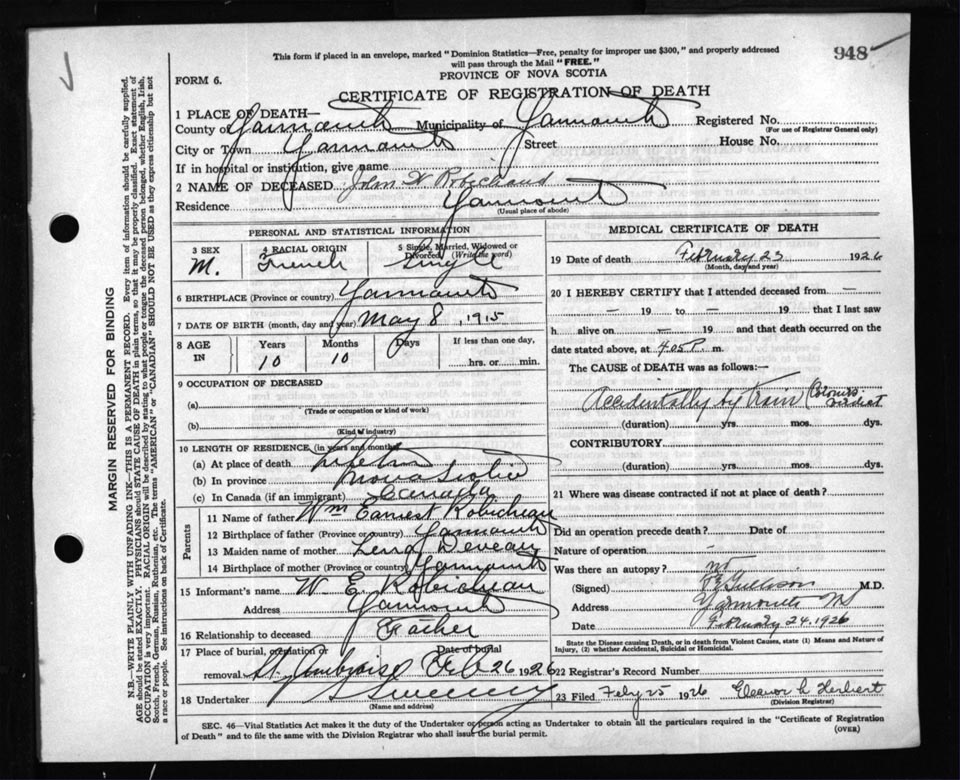 This form if placed in an envelope, marked "Dominion Statistics—Free, penalty for improper use $300," and properly addressed
will pass through the Mail "FREE."
948
FORM 6.
PROVINCE OF NOVA SCOTIA
CERTIFICATE OF REGISTRATION OF DEATH
MARGIN RESERVED FOR BINDING
N.B.—WRITE PLAINLY WITH UNFADING INK—THIS IS A PERMANENT RECORD. Every item of information should be carefully supplied.
AGE should be stated EXACTLY. PHYSICIANS should STATE CAUSE OF DEATH in plain terms, so that it may be properly classified. Exact statement of
OCCUPATION is very important. RACIAL ORIGIN will be described by stating to what people or tongue the deceased person belonged, whether English, Irish,
Scotch, French, German, Russian, Ruthenian, etc. The terms "AMERICAN" or "CANADIAN" SHOULD NOT BE USED as they express citizenship but not
a race or people. See instructions on back of Certificate.
1 PLACE OF DEATH—
County of Yarmouth Municipality of Yarmouth Registered No.
(For use of Registrar General only)
City or Town Yarmouth Street House No.
If in hospital or institution, give name
2 NAME OF DECEASED John W Robichaud
Residence Yarmouth
(Usual place of abode)
PERSONAL AND STATISTICAL INFORMATION
3 SEX 4 RACIAL ORIGIN 5 Single, Married, Widowed or
Divorced (Write the word)
M. French Single
6 BIRTHPLACE (Province or country) Yarmouth
7 DATE OF BIRTH (month, day and year) May 8, 1915
8 AGE IN Years Months Days If less than one day,
10 10 hrs. or min.
9 OCCUPATION OF DECEASED
(a)
(Trade or occupation or kind of work)
(b)
(Kind of industry)
10 LENGTH OF RESIDENCE (in years and months)
(a) At place of death Lifetime
(b) In province Nova Scotia
(c) In Canada (if an immigrant) Canada
Parents
11 Name of father Wm Earnest Robicheau
12 Birthplace of father (Province or country) Yarmouth
13 Maiden name of mother Deveau
14 Birthplace of mother (Province or country) Yarmouth
15 Informant's name W. E. Robicheau
Address Yarmouth
16 Relationship to deceased Father
17 Place of burial, cremation or Date of burial
removal St. Ambroise Feb 26 1926
18 Undertaker Sweeney
(Name and address)
MEDICAL CERTIFICATE OF DEATH
19 Date of death February 23 1926
(Month, day and year)
20 I HEREBY CERTIFY that I attended deceased from —
— 19 to — 19 that I last saw
h alive on — 19 and that death occurred on
date stated above, at 4.05 P. m.
The CAUSE of DEATH was as follows:—
Accidentally by Train (Coroner's verdict
(duration) yrs. mos. dys.
CONTRIBUTORY.
(duration) yrs. mos. dys.
21 Where was disease contracted if not at place of death?
Did an operation precede death? Date of
Nature of operation —
Was there an autopsy? no
(Signed) M.D.
Address Yarmouth
Date February 24, 1926
State the Disease causing Death, or in death from Violent Causes, state (1) Means and Nature of
Injury, (2) whether Accidental, Suicidal or Homicidal.
22 Registrar's Record Number
23 Filed Feby 25 1926 Eleanor L Herbert
(Division Registrar)
SEC. 46—Vital Statistics Act makes it the duty of the Undertaker or person acting as Undertaker to obtain all the particulars required in the "Certificate of Registration
of Death" and to file the same with the Division Registrar who shall issue the burial permit.
(OVER)